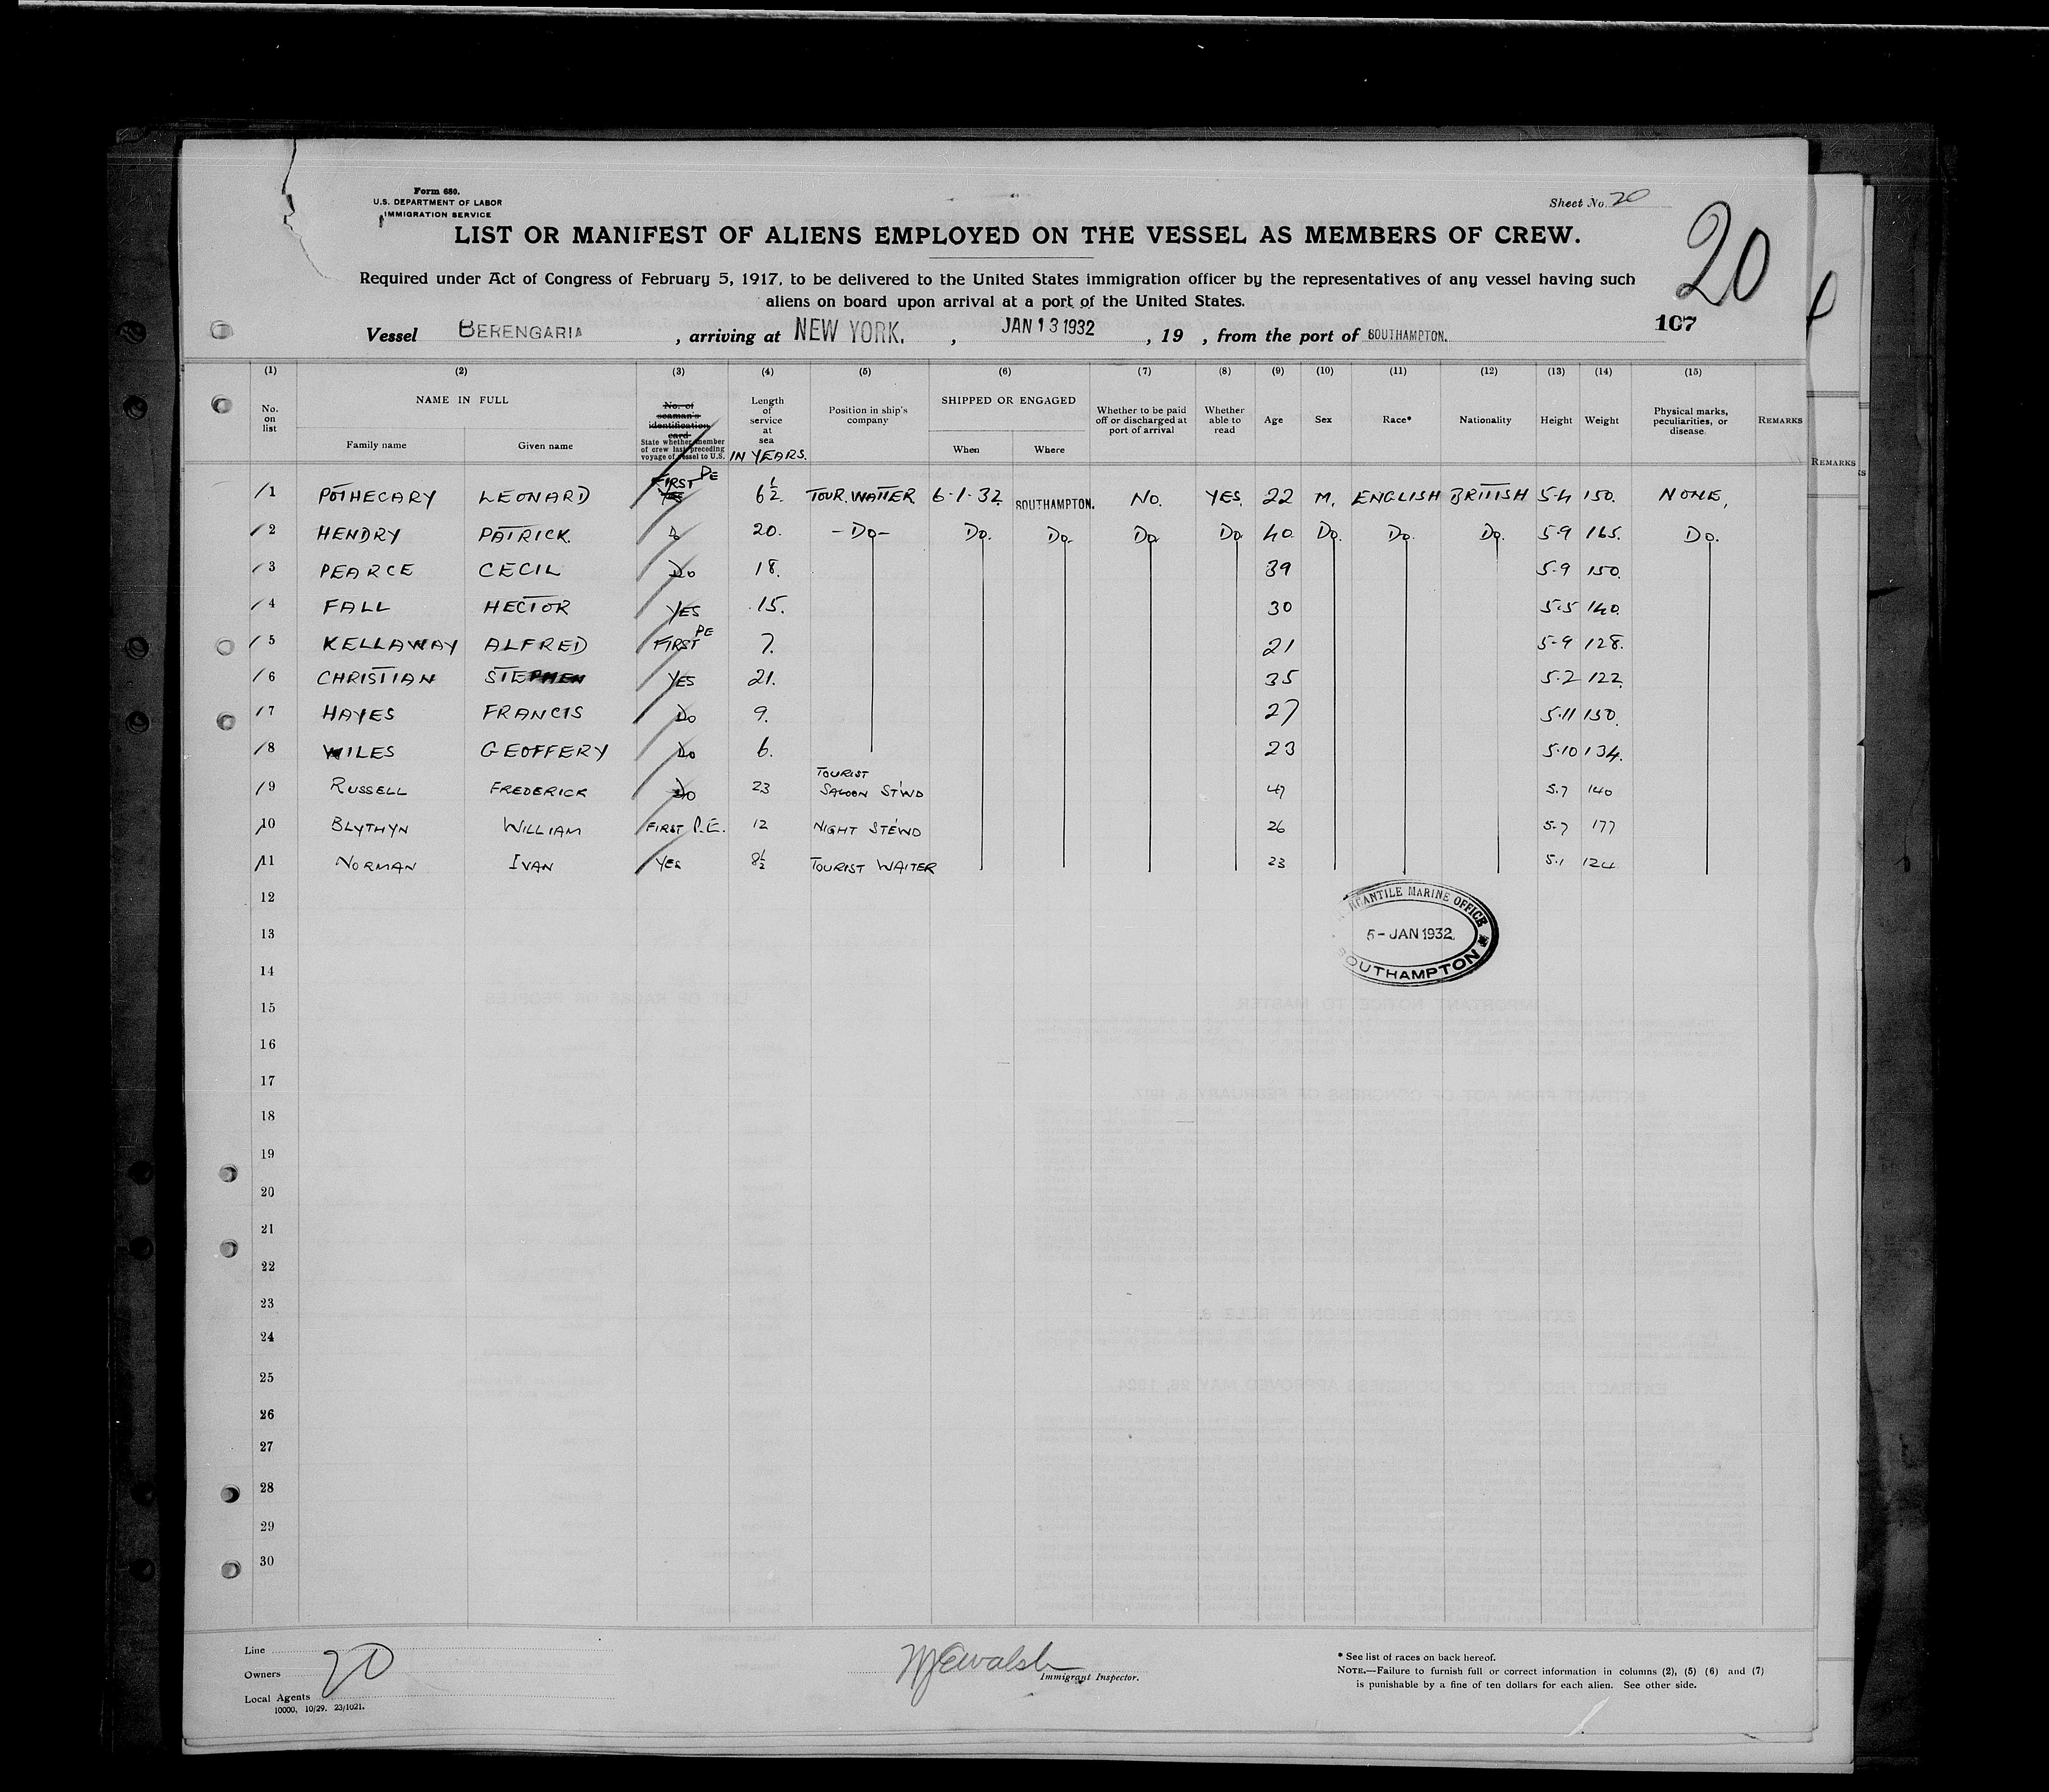 Form 680.
U.S. DEPARTMENT OF LABOR
IMMIGRATION SERVICE
Sheet No. 20
20
LIST OR MANIFEST OF ALIENS EMPLOYED ON THE VESSEL AS MEMBERS OF CREW.
Required under Act of Congress of February 5, 1917, to be delivered to the United States immigration officer by the representatives of any vessel having such
aliens on board upon arrival at a port of the United States.
107
Vessel BERENGARIA , arriving at NEW YORK. , JAN 13 1932 , 19 , from the port of SOUTHAMPTON.
(1) (2) (3) (4) (5) (6) (7) (8) (9) (10) (11) (12) (13) (14) (15)
No. on list NAME IN FULL Family name Given name No. of seaman's identification card State whether member of crew last preceding voyage of vessel to U.S. Length of service at sea IN YEARS. Position in ship's company SHIPPED OR ENGAGED When Where Whether to be paid off or discharged at port of arrival Whether able to read Age Sex Race* Nationality Height Weight Physical marks, peculiarities, or disease. REMARKS
REMARKS
1 POTHECARY LEONARD FIRST PE YES 6½ TOUR. WAITER 6-1-32 SOUTHAMPTON. NO. YES. 22 M. ENGLISH BRITISH 5-4 150. NONE,
2 HENDRY PATRICK. 20. -DO- DO. DO. DO DO 40. DO. DO. DO. 5-9 165. DO.
3 PEARCE CECIL DO 18. 39 5-9 150.
4 FALL HECTOR YES 15. 30 5-5 140.
5 KELLAWAY ALFRED FIRST PE 7. 21 5-9 128.
6 CHRISTIAN STEPHEN YES 21. 35 5-2 122.
7 HAYES FRANCIS DO 9. 27 5-11 150.
8 WILES GEOFFERY DO 6. 23 5-10 134.
9 RUSSELL FREDERICK DO 23 TOURIST SALOON ST'WD 47 5-7 140
10 BLYTHYN WILLIAM FIRST P.E. 12 NIGHT STE'WD 26 5-7 177
11 NORMAN IVAN YES 8½ TOURIST WAITER 23 5-1 124
12
13
14
15
16
17
18
19
20
21
22
23
24
25
26
27
28
29
30
MERCANTILE MARINE OFFICE
5-JAN 1932
SOUTHAMPTON
Line
Owners
Local Agents
20
10000, 10/29. 23/1021.
Immigrant Inspector.
* See list of races on back hereof.
NOTE.—Failure to furnish full or correct information in columns (2), (5) (6) and (7)
is punishable by a fine of ten dollars for each alien. See other side.